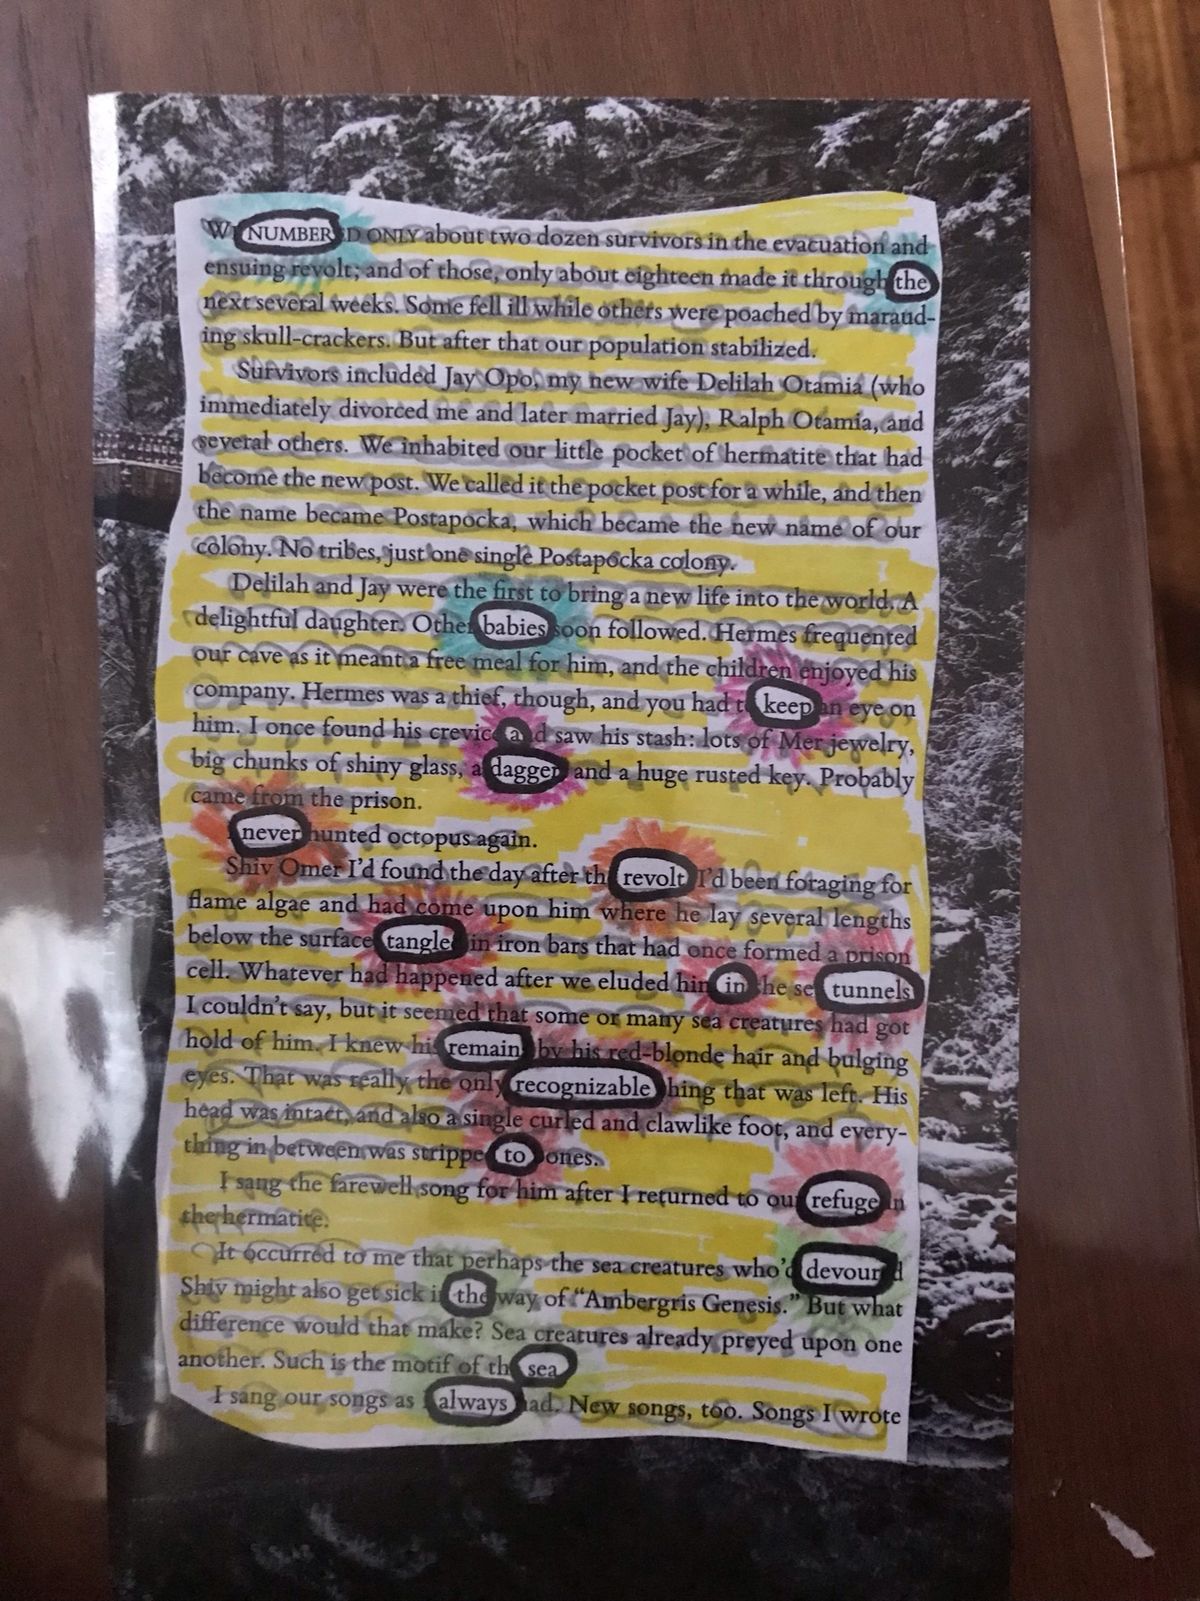 WE NUMBERED ONLY about two dozen survivors in the evacuation and
ensuing revolt; and of those, only about eighteen made it through the
next several weeks. Some fell ill while others were poached by maraud-
ing skull-crackers. But after that our population stabilized.
Survivors included Jay Opo, my new wife Delilah Otamia (who
immediately divorced me and later married Jay), Ralph Otamia, and
several others. We inhabited our little pocket of hermatite that had
become the new post. We called it the pocket post for a while, and then
the name became Postapocka, which became the new name of our
colony. No tribes, just one single Postapocka colony.
Delilah and Jay were the first to bring a new life into the world. A
delightful daughter. Other babies soon followed. Hermes frequented
our cave as it meant a free meal for him, and the children enjoyed his
company. Hermes was a thief, though, and you had to keep an eye on
him. I once found his crevice and saw his stash: lots of Mer jewelry,
big chunks of shiny glass, a dagger and a huge rusted key. Probably
came from the prison.
never hunted octopus again.
Shiv Omer I'd found the day after the revolt I'd been foraging for
flame algae and had come upon him where he lay several lengths
below the surface tangled in iron bars that had once formed a prison
cell. Whatever had happened after we eluded him in the sea tunnels
I couldn't say, but it seemed that some or many sea creatures had got
hold of him. I knew his remains by his red-blonde hair and bulging
eyes. That was really the only recognizable thing that was left. His
head was intact, and also a single curled and clawlike foot, and every-
thing in between was stripped to bones.
I sang the farewell song for him after I returned to our refuge in
the hermatite.
It occurred to me that perhaps the sea creatures who'd devoured
Shiv might also get sick in the way of “Ambergris Genesis.” But what
difference would that make? Sea creatures already preyed upon one
another. Such is the motif of the sea
I sang our songs as I always had. New songs, too. Songs I wrote